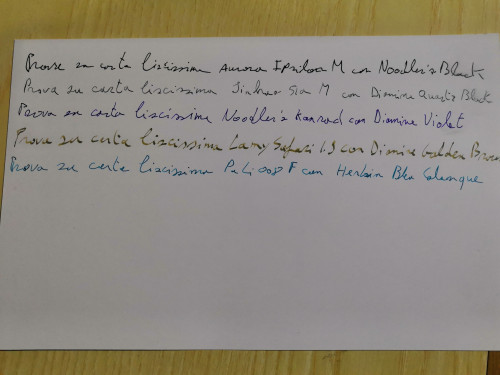 Prova su carta liscissima Aurora Ipsilon M con Noodler's Black
Prova su carta liscissima Jinhao M con Diamine Black
Prova su carta liscissima Noodler's Konrad con Diamine Violet
Prova su carta liscissima Lamy Safari 1.1 con Diamine Golden Brown
Prova su carta liscissima F con Herbin Bleu Calanque